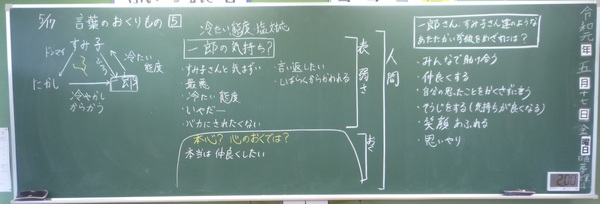 5/17 言葉のおくりもの 5
すみ子
ドンマイ
冷たい態度
たかし
一郎
冷やかし
からかう
冷たい態度 塩対応
一郎の気持ち?
・すみ子さんと気まずい
最悪
・冷たい態度
・いやだー
・バカにされたくない
・言い返したい
・しばらくきらわれる
本心? 心のおくでは?
本当は仲良くしたい
表
弱さ
人間
一郎さん、すみ子さん達のような
あたたかい学級をめざすには?
・みんなで助け合う
・仲良くする
・自分の思ったことをかくさずに言う
・そうじをする(気持ちが良くなる)
・笑顔あふれる
・思いやり
令和元年五月十七日金曜日